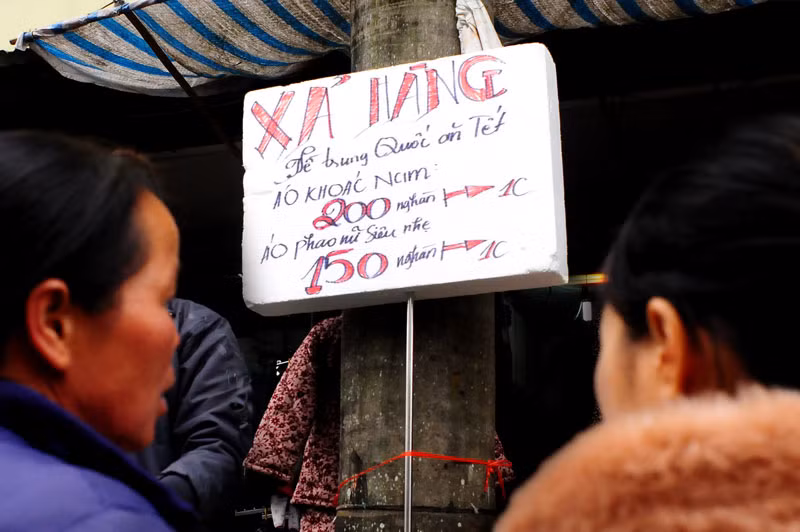 XẢ HÀNG
Để trung Quốc ăn Tết
ÁO KHOÁC Nam:
200 nghìn → 1C
ÁO phao nữ Siêu nhẹ
150 nghìn → 1C